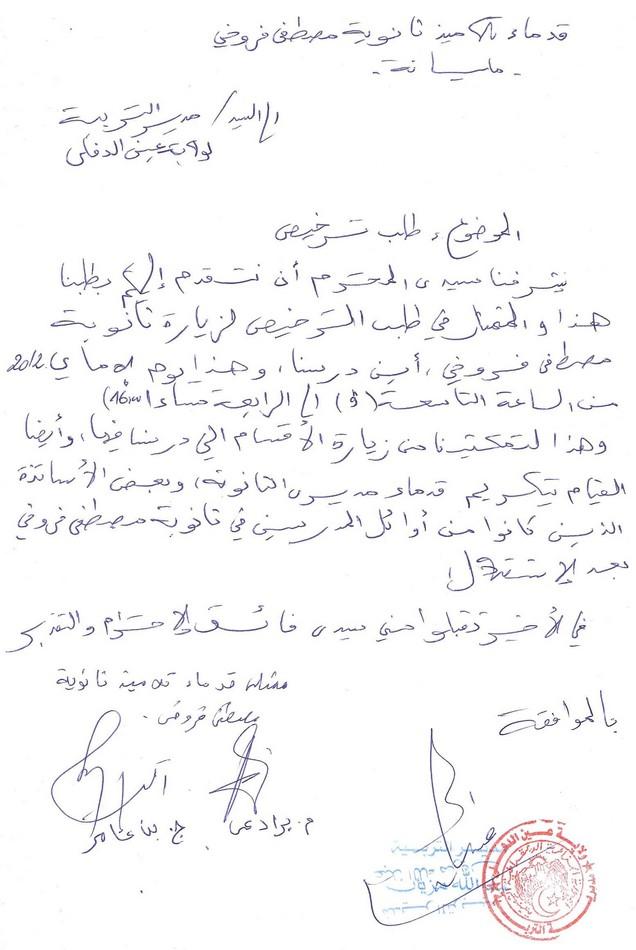 قدماء تلاميذ ثانوية مصطفى فروخي
- مليانة -
إلى السيد / مدير التربية
لولاية عين الدفلى
الموضوع : طلب ترخيص
يشرفنا سيدي المحترم أن نتقدم إليكم بطلبنا
هذا والمتمثل في طلب الترخيص لزيارة ثانوية
مصطفى فروخي ، أين درسنا ، وهذا يوم ماي 2012
من الساعة التاسعة (9) إلى الرابعة مساءا (16)
وهذا لتمكيننا من زيارة الأقسام التي درسنا فيها ، وأيضا
القيام بتكريم قدماء مديري الثانوية ، وبعض الأساتذة
الذين كانوا من أوائل المدرسين في ثانوية مصطفى فروخي
بعد الإستقلال
في الأخير تقبلوا مني سيدي فائق الإحترام والتقدير
قدماء تلاميذ ثانوية
مصطفى فروخي .
بالموافقة
م. برادعي ج. بن عامر
مدير التربية
ولاية عين الدفلى